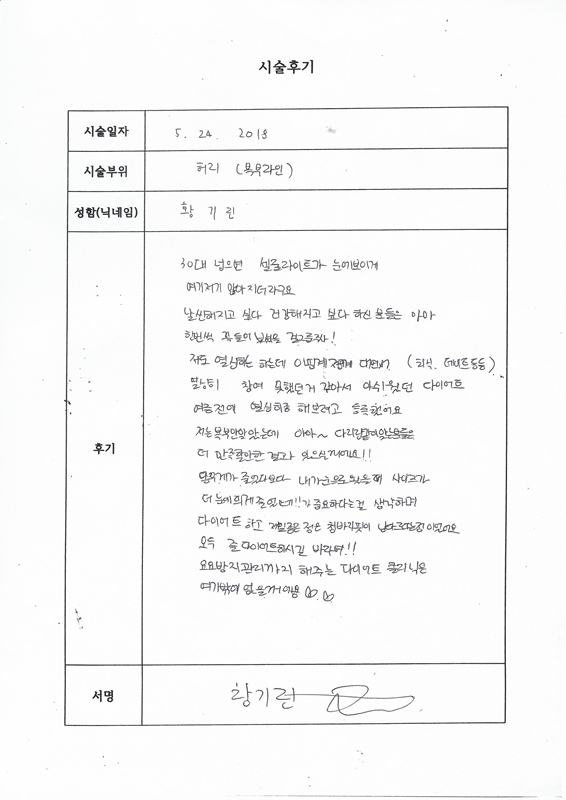 시술후기
시술일자 5. 24. 2018
시술부위 허리 (복부라인)
성함(닉네임) 황기린
후기
30대 넘으면 셀룰라이트가 눈에보이게
여기저기 많아지더라구요
날씬해지고 싶다 건강해지고 싶다 하신 분들은 아마
한번씩
저도 열심히는 하는데 (회식, 데이트등등)
참여 못했던거 같아서 아쉬웠던 다이어트
여름전에 열심히로 해보려고 등록했어요
저는복부만맞았는데 아마~ 다리
더 만족할만한 결과 있으실꺼에요!!
몸무게가 줄었다보다 내가눈으로 봤을때 사이즈가
더 눈에띄게 줄었는가!!가 중요하다는걸 생각하며
다이어트 하고 제일좋은 점은
모두 즐다이어트하시길 바라며!!
요요방지관리까지 해주는 다이어트 클리닉은
여기밖에 없을꺼에용
서명 황기린